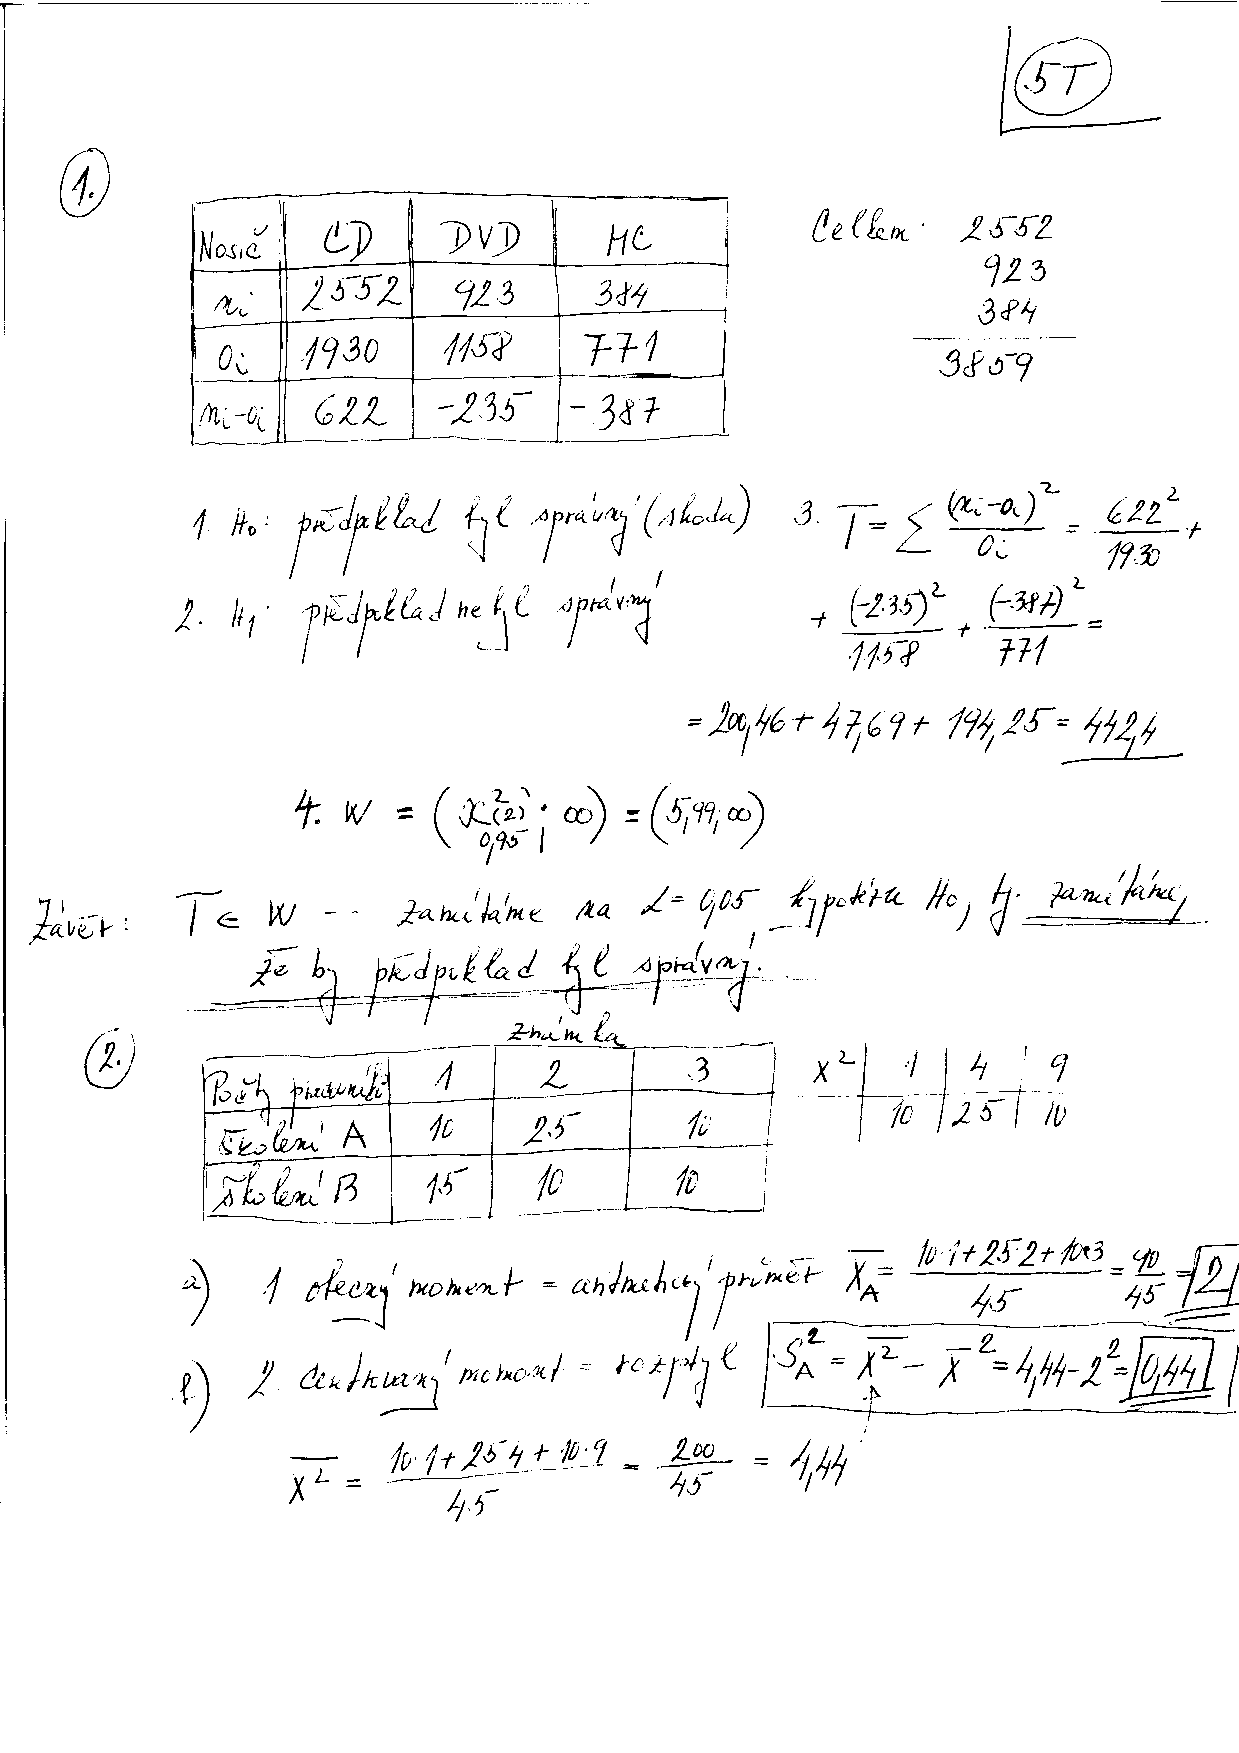 5T
1.
Nosič CD DVD MC
ni 2552 923 384
oi 1930 1158 771
ni-oi 622 -235 -387
Celkem: 2552
923
384
3859
1. H₀: předpoklad byl správný (shoda)
2. H₁: předpoklad nebyl správný
3. T = Σ (ni-oi)²/oi = 622²/1930 +
+ (-235)²/1158 + (-387)²/771 =
= 200,46 + 47,69 + 194,25 = 442,4
4. W = (χ²0,95(2); ∞) = (5,99; ∞)
Závěr: T ∈ W -- zamítáme na α = 0,05 hypotézu H₀, tj. zamítáme,
že by předpoklad byl správný.
2.
známka
Počty pracovníků 1 2 3
Školení A 10 25 10
Školení B 15 10 10
x² 1 4 9
10 25 10
a) 1 obecný moment = aritmetický průměr X̄A = 10·1+25·2+10·3/45 = 90/45 = 2
b) 2. centrovaný moment = rozptyl S²A = x̄² - x̄² = 4,44 - 2² = 0,44
x̄² = 10·1+25·4+10·9/45 = 200/45 = 4,44